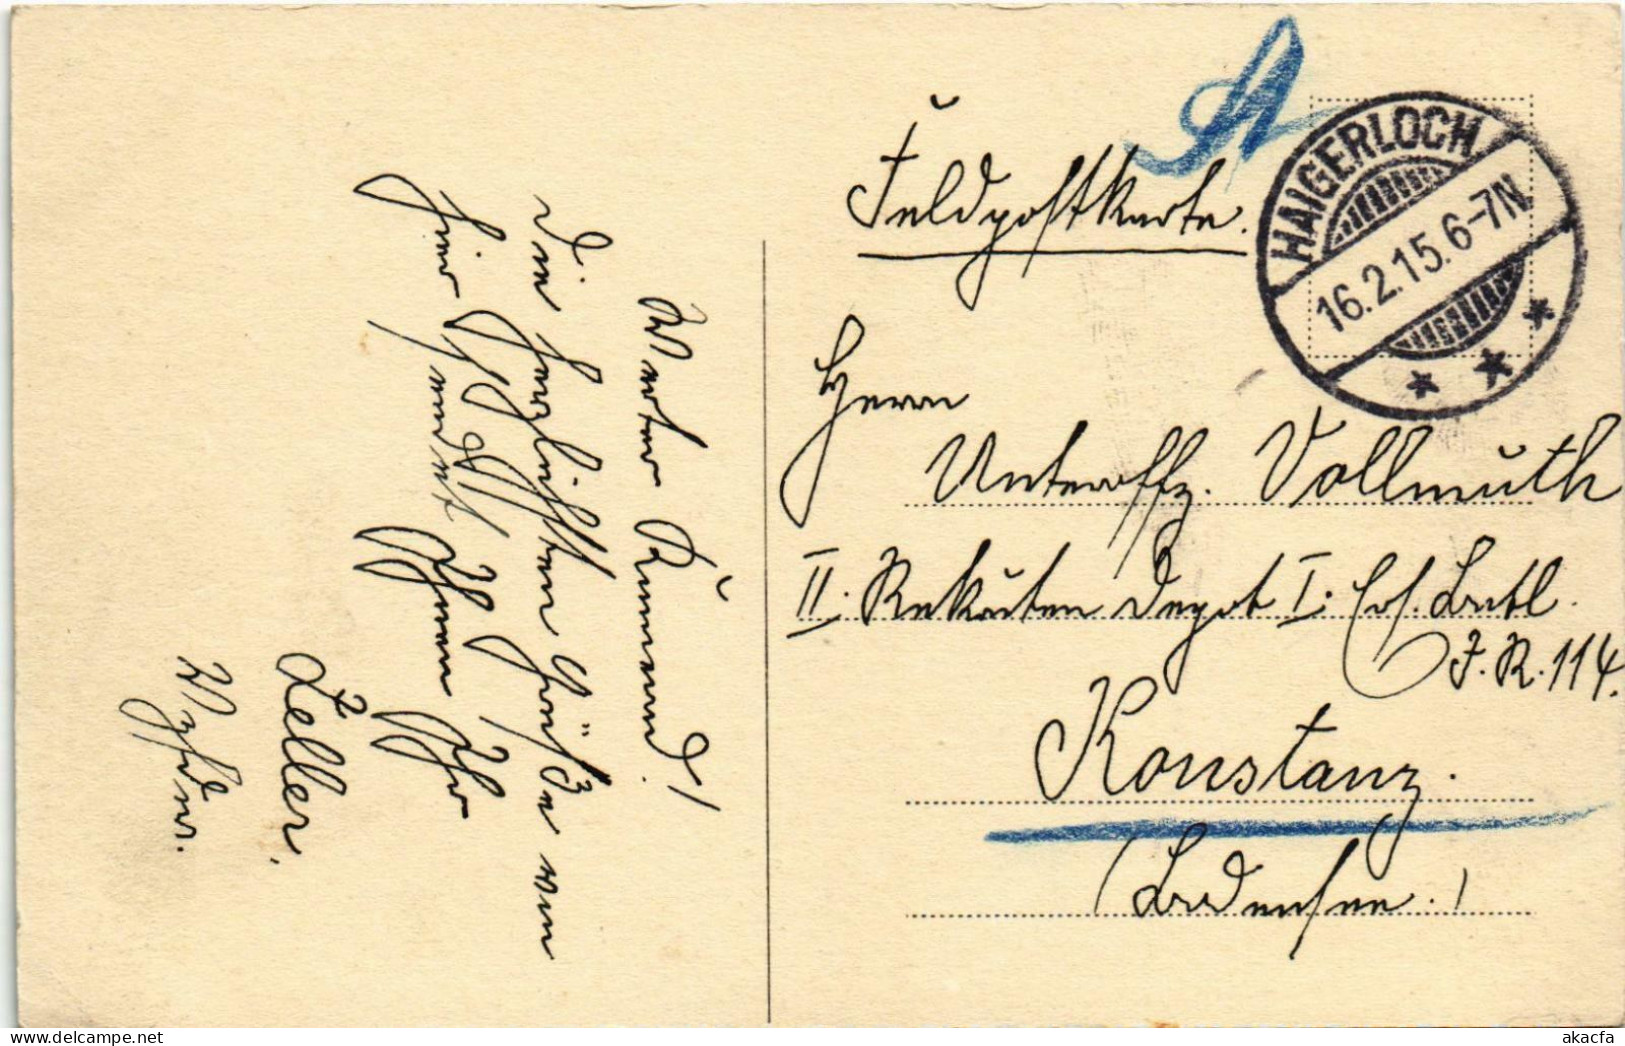 Feldpostkarte.
HAIGERLOCH
16.2.15. 6-7N
Herrn
Unteroffz. Vollmuth
II. Rekruten Depot I. Ers. Batl.
I. R. 114.
Konstanz.
(Bodensee.)
Werter Freund!
Die herzlichsten Grüße von
hier sendet Ihnen Ihr
Zeller,
akacfa